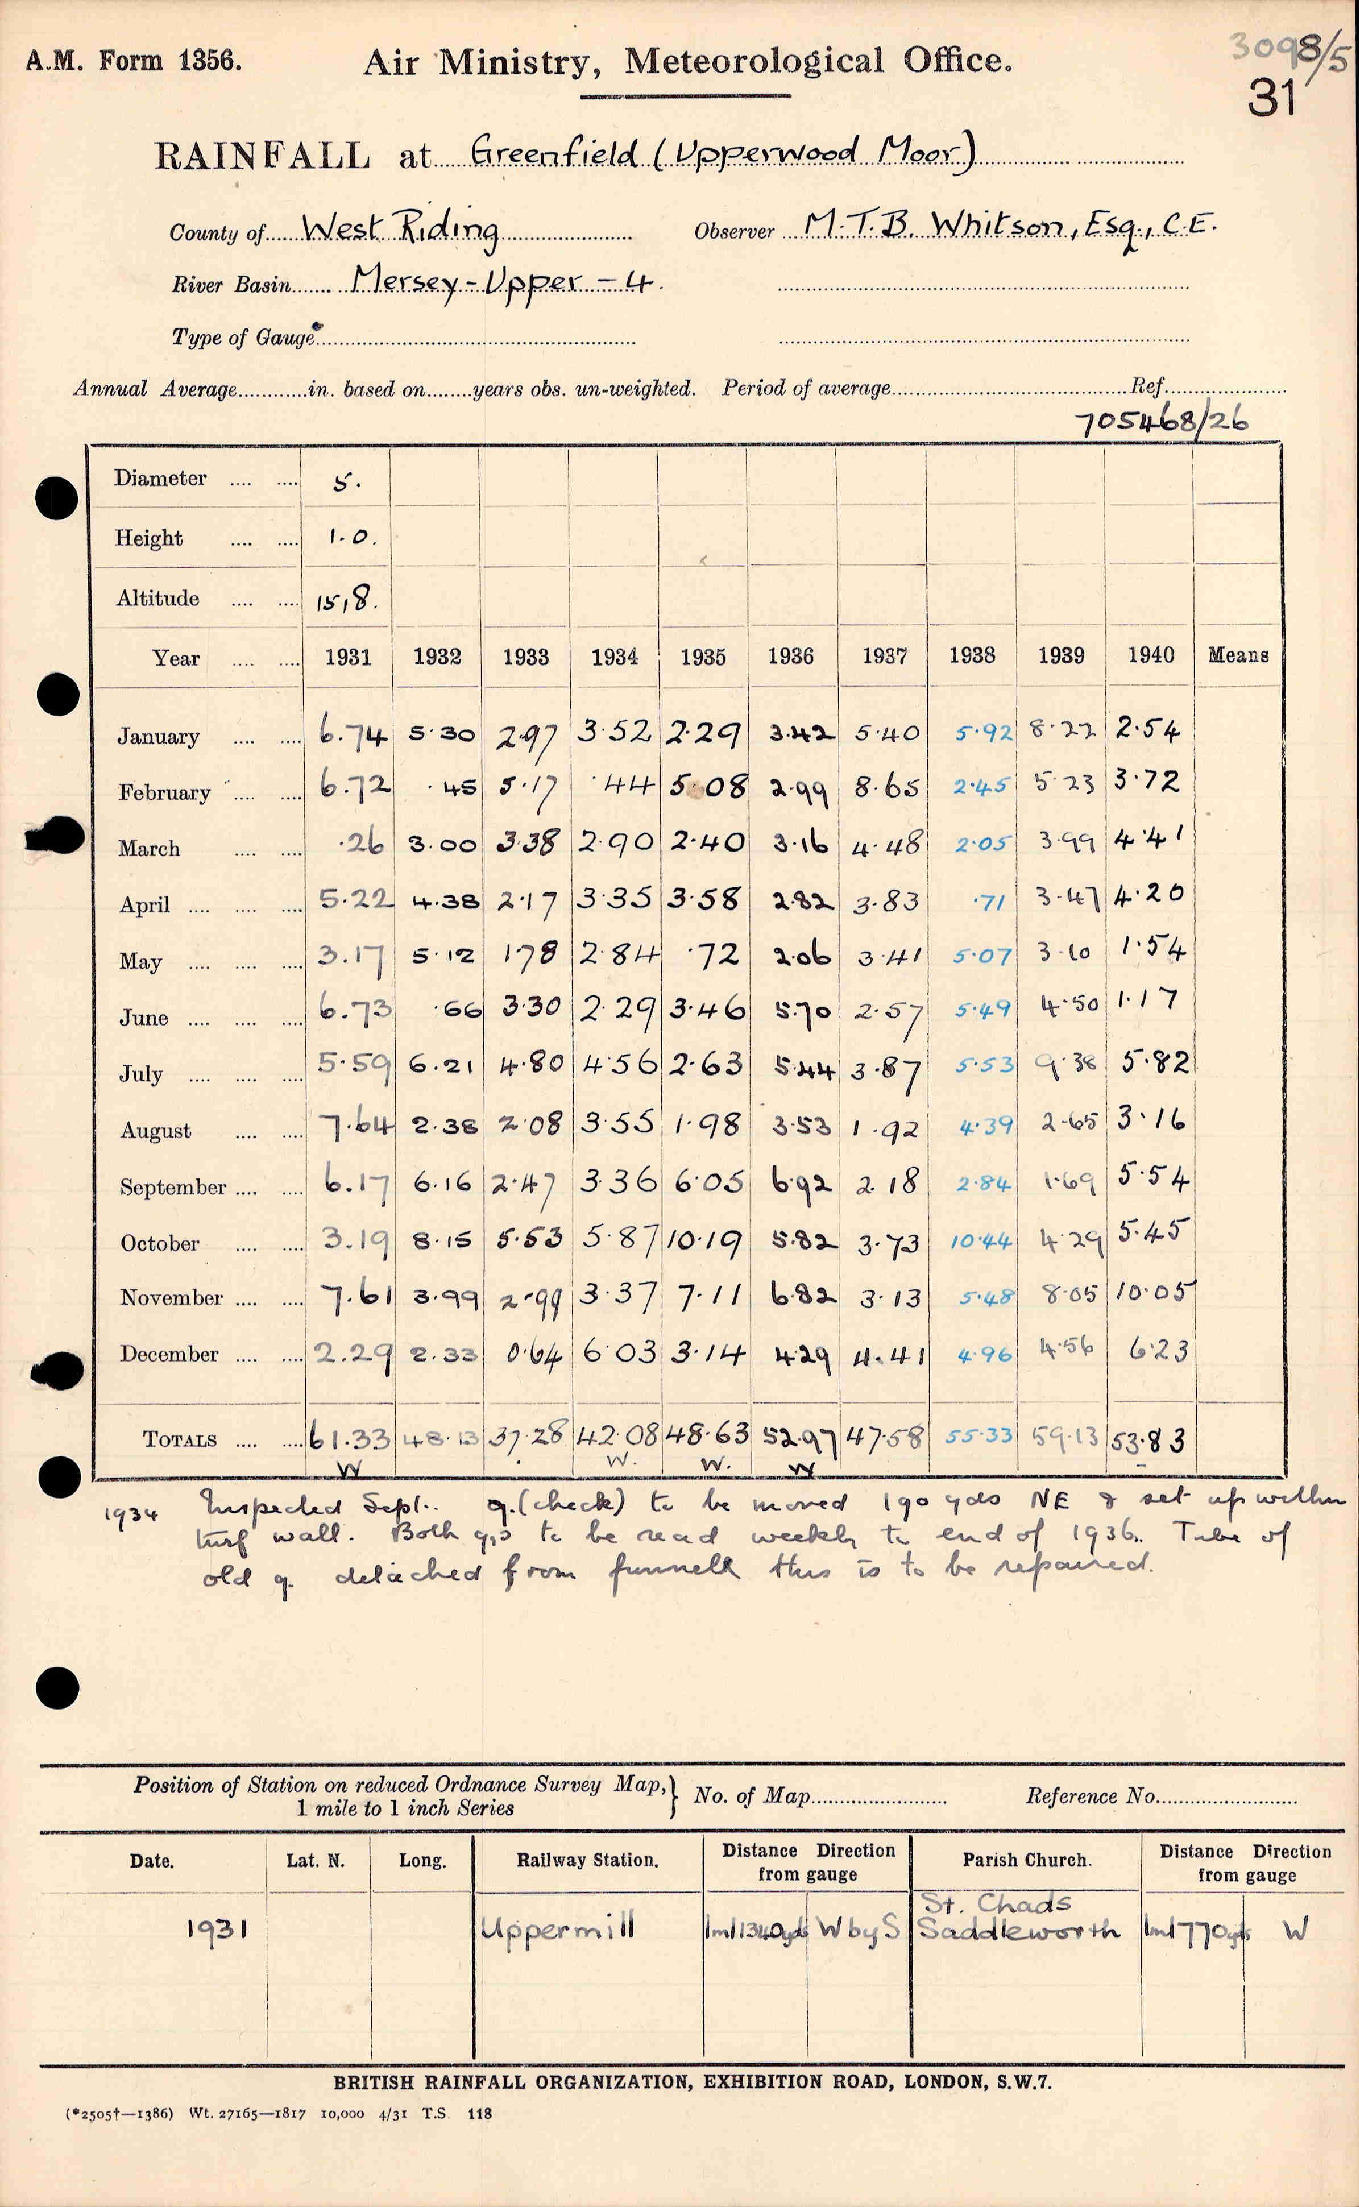 A.M. Form 1356. Air Ministry, Meteorological Office. 3098/5
31
RAINFALL at Greenfield (Upperwood Moor)
County of West Riding Observer M.T.B. Whitson, Esq., C.E.
River Basin Mersey-Upper-4.
Type of Gauge
Annual Average............in. based on........years obs. un-weighted. Period of average.......... Ref..........
705468/26
Diameter 5.
Height 1.0.
Altitude 1518.
Year 1931 1932 1933 1934 1935 1936 1937 1938 1939 1940 Means
January 6.74 5.30 2.97 3.52 2.29 3.42 5.40 5.92 8.22 2.54
February 6.72 .45 5.17 .44 5.08 2.99 8.65 2.45 5.23 3.72
March .26 3.00 3.38 2.90 2.40 3.16 4.48 2.05 3.99 4.41
April 5.22 4.38 2.17 3.35 3.58 2.82 3.83 .71 3.47 4.20
May 3.17 5.12 1.78 2.84 .72 2.06 3.41 5.07 3.10 1.54
June 6.73 .66 3.30 2.29 3.46 5.70 2.57 5.49 4.50 1.17
July 5.59 6.21 4.80 4.56 2.63 5.44 3.87 5.53 9.38 5.82
August 7.64 2.38 2.08 3.55 1.98 3.53 1.92 4.39 2.65 3.16
September 6.17 6.16 2.47 3.36 6.05 6.92 2.18 2.84 1.69 5.54
October 3.19 8.15 5.53 5.87 10.19 5.82 3.73 10.44 4.29 5.45
November 7.61 3.99 2.99 3.37 7.11 6.82 3.13 5.48 8.05 10.05
December 2.29 2.33 0.64 6.03 3.14 4.29 4.41 4.96 4.56 6.23
TOTALS 61.33 48.13 37.28 42.08 48.63 52.97 47.58 55.33 59.13 53.83
W W. W. W
1934 Inspected Sept. g. (check) to be moved 190 yds NE & set up within
turf wall. Both g,s to be read weekly to end of 1936. Tube of
old g. detached from funnell this is to be repaired.
Position of Station on reduced Ordnance Survey Map,} No. of Map.......... Reference No..........
1 mile to 1 inch Series
Date. Lat. N. Long. Railway Station. Distance Direction from gauge Parish Church. Distance Direction from gauge
1931 Uppermill 1ml 1340yds W by S St. Chads Saddleworth 1ml 770yds W
BRITISH RAINFALL ORGANIZATION, EXHIBITION ROAD, LONDON, S.W.7.
(*2505†—1386) Wt. 27165—1817 10,000 4/31 T.S. 118